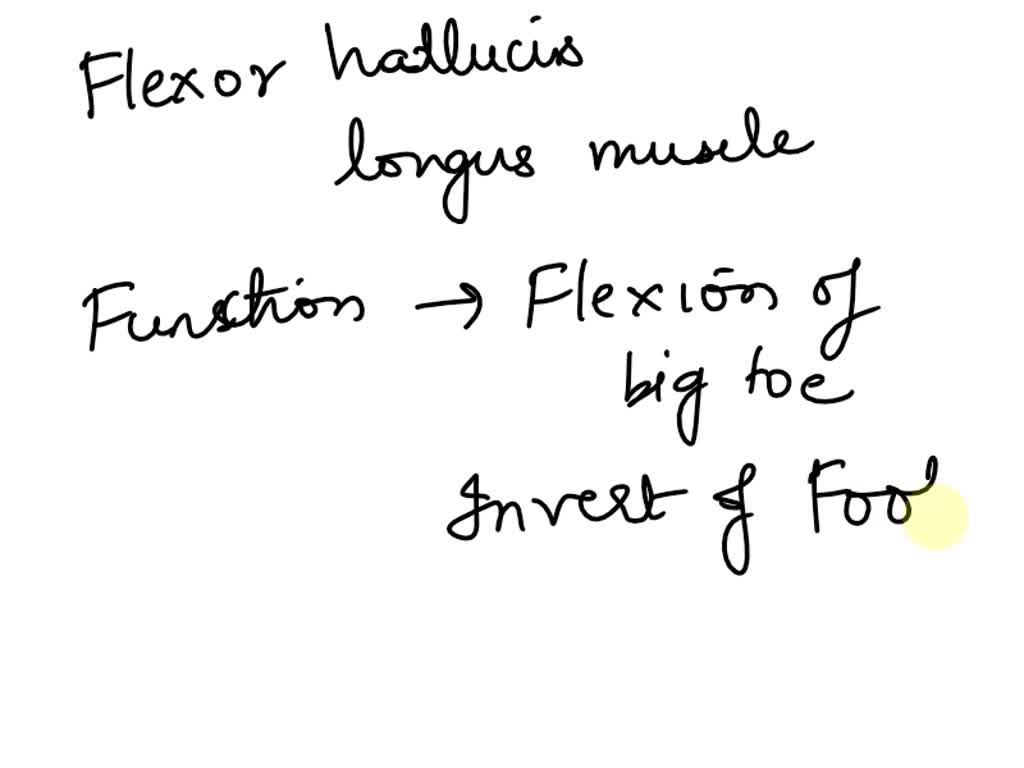 Flexor hallucis
longus muscle
Function → Flexion of
big toe
Invert of Foo